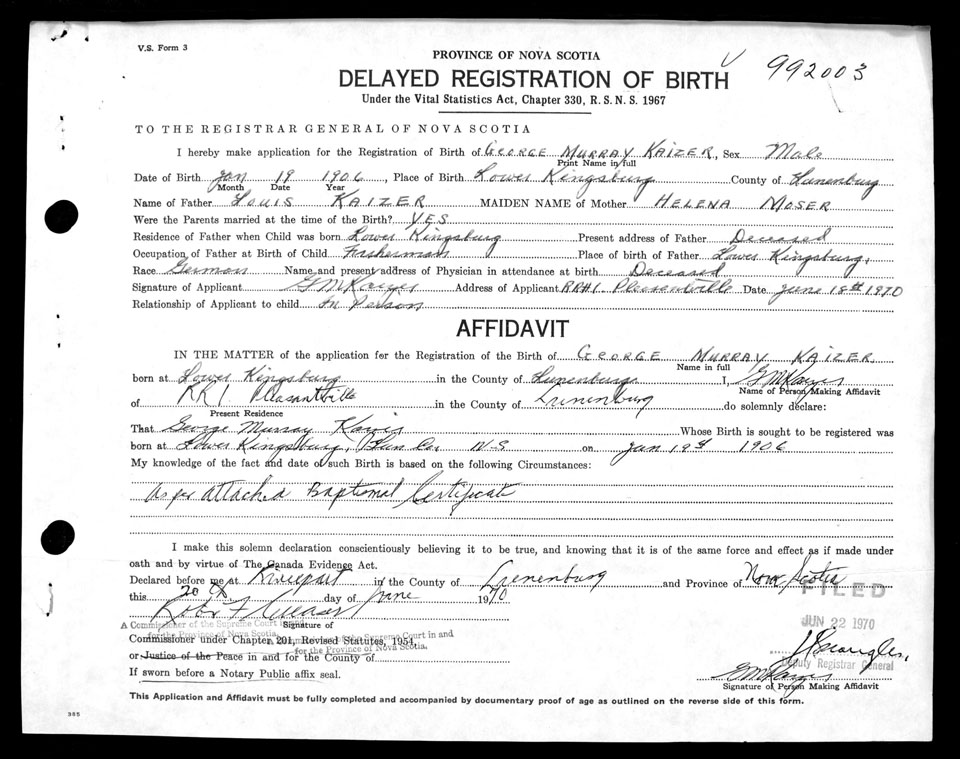 V.S. Form 3
PROVINCE OF NOVA SCOTIA
992003
DELAYED REGISTRATION OF BIRTH
Under the Vital Statistics Act, Chapter 330, R.S.N.S. 1967
TO THE REGISTRAR GENERAL OF NOVA SCOTIA
I hereby make application for the Registration of Birth of GEORGE MURRAY KAIZER, Sex Male
Print Name in full
Date of Birth Jan 19 1906, Place of Birth Lower Kingsburg County of Lunenburg
Month Date Year
Name of Father LOUIS KAIZER MAIDEN NAME of Mother HELENA MOSER
Were the Parents married at the time of the Birth? YES
Residence of Father when Child was born Lower Kingsburg Present address of Father Deceased
Occupation of Father at Birth of Child Fisherman Place of birth of Father Lower Kingsburg,
Race German Name and present address of Physician in attendance at birth Deceased
Signature of Applicant Address of Applicant RR#1. Pleasantville Date June 18th 1970
Relationship of Applicant to child In Person
AFFIDAVIT
IN THE MATTER of the application for the Registration of the Birth of GEORGE MURRAY KAIZER
Name in full
born at Lower Kingsburg in the County of Lunenburg I,
Name of Person Making Affidavit
of RR1 Pleasantville in the County of Lunenburg do solemnly declare:
Present Residence
That George Murray Whose Birth is sought to be registered was
born at Lower Kingsburg, Lun Co. N-S on Jan 19 1906
My knowledge of the fact and date of such Birth is based on the following Circumstances:
As per attached Baptismal Certificate
I make this solemn declaration conscientiously believing it to be true, and knowing that it is of the same force and effect as if made under
oath and by virtue of The Canada Evidence Act.
Declared before me at Riverport in the County of Lunenburg and Province of Nova Scotia
this 20 day of June 1970
FILED
JUN 22 1970
A Commissioner of the Supreme Court
Signature of
for the Province of Nova Scotia
Commissioner under Chapter 201, Revised Statutes, 1954,
Supreme Court in and
for the Province of Nova Scotia.
or Justice of the Peace in and for the County of
Deputy Registrar General
If sworn before a Notary Public affix seal.
Signature of Person Making Affidavit
This Application and Affidavit must be fully completed and accompanied by documentary proof of age as outlined on the reverse side of this form.
985